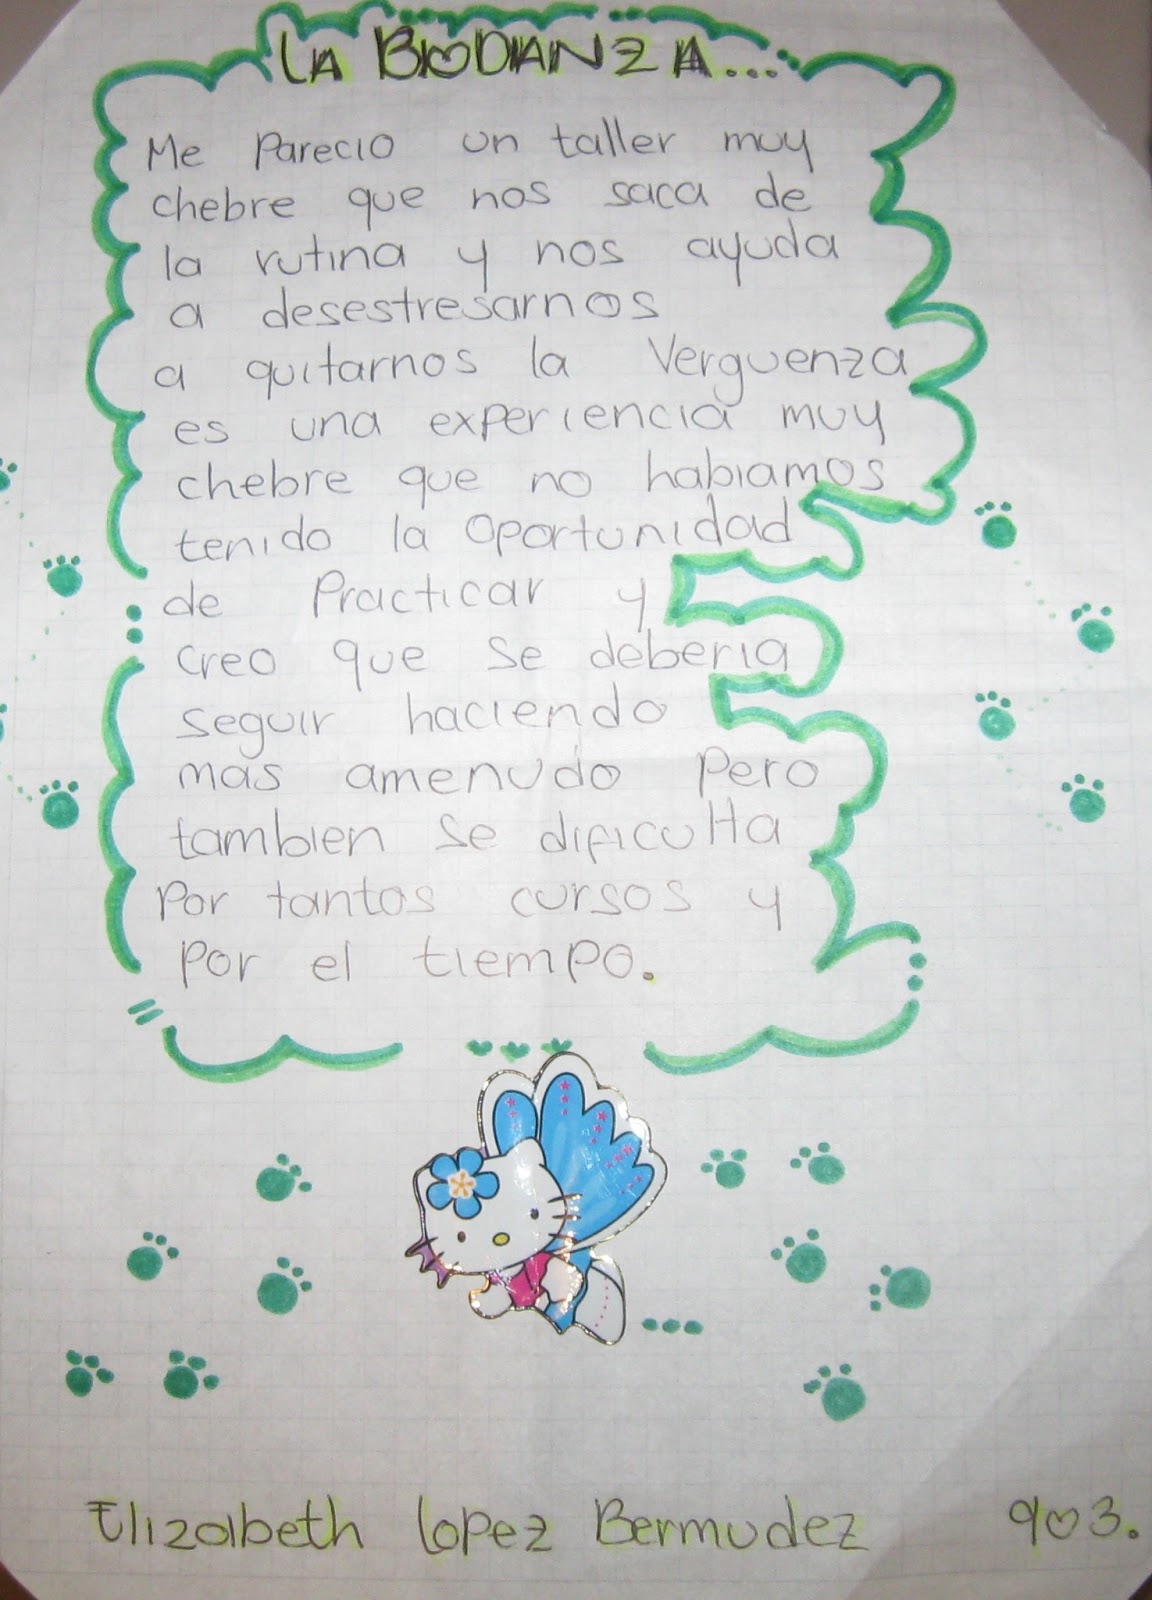 LA BIODANZA...
Me Parecio un taller muy
chebre que nos saca de
la rutina y nos ayuda
a desestresarnos
a quitarnos la Verguenza
es una experiencia muy
chebre que no habiamos
tenido la oportunidad
de Practicar y
creo que se deberia
seguir haciendo
mas amenudo pero
tambien se dificulta
por tantos cursos y
por el tiempo.
Elizabeth Lopez Bermudez 903.